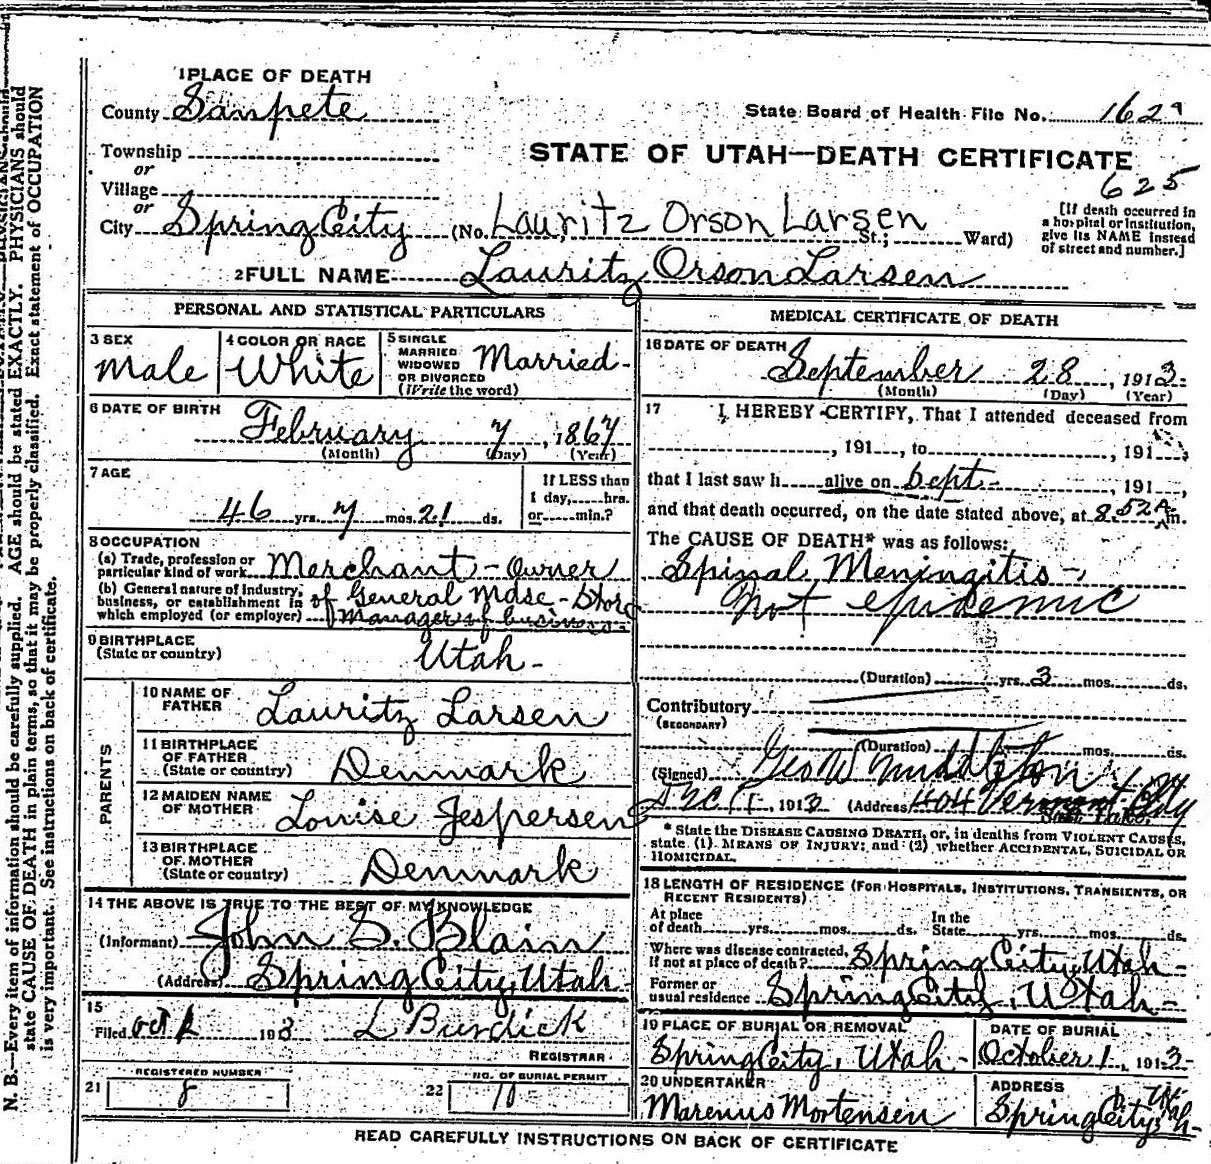 1 PLACE OF DEATH
County Sanpete
State Board of Health File No. 1629
Township
or
Village
or
City Spring City (No. Lauritz Orson Larsen St.; Ward)
STATE OF UTAH—DEATH CERTIFICATE
625
[If death occurred in
a hospital or institution,
give its NAME instead
of street and number.]
2 FULL NAME Lauritz Orson Larsen
PERSONAL AND STATISTICAL PARTICULARS
3 SEX
Male
4 COLOR OR RACE
White
5 SINGLE
MARRIED
WIDOWED
OR DIVORCED
(Write the word)
Married-
6 DATE OF BIRTH
February 7, 1867
(Month) (Day) (Year)
7 AGE
46 yrs. 7 mos. 21 ds.
If LESS than
1 day, hrs.
or min.?
8 OCCUPATION
(a) Trade, profession or
particular kind of work Merchant - Owner
(b) General nature of Industry,
business, or establishment in
which employed (or employer)
of General Mdse - Store
Manager of business.
9 BIRTHPLACE
(State or country)
Utah-
PARENTS
10 NAME OF
FATHER
Lauritz Larsen
11 BIRTHPLACE
OF FATHER
(State or country)
Denmark
12 MAIDEN NAME
OF MOTHER
Louise Jespersen
13 BIRTHPLACE
OF MOTHER
(State or country)
Denmark
14 THE ABOVE IS TRUE TO THE BEST OF MY KNOWLEDGE
(Informant) John S. Blain
(Address) Spring City, Utah-
15
Filed Oct 1 1913 L Burdick
REGISTRAR
21 REGISTERED NUMBER
8
22 NO. OF BURIAL PERMIT
10
MEDICAL CERTIFICATE OF DEATH
16 DATE OF DEATH
September 28, 1913-
(Month) (Day) (Year)
17 I HEREBY CERTIFY, That I attended deceased from
, 191 , to , 191 ,
that I last saw h alive on Sept- , 191 ,
and that death occurred, on the date stated above, at 8.52 A m.
The CAUSE OF DEATH* was as follows:
Spinal Meningitis-
Not epidemic
(Duration) yrs. 3 mos. ds.
Contributory
(SECONDARY)
(Duration) mos. ds.
(Signed) Geo W Middleton
1913 (Address) 404 Vermont Bldg
Salt Lake
* State the DISEASE CAUSING DEATH, or, in deaths from VIOLENT CAUSES,
state (1) MEANS OF INJURY; and (2) whether ACCIDENTAL, SUICIDAL OR
HOMICIDAL.
18 LENGTH OF RESIDENCE (FOR HOSPITALS, INSTITUTIONS, TRANSIENTS, OR
RECENT RESIDENTS)
At place
of death yrs. mos. ds.
In the
State yrs. mos. ds.
Where was disease contracted,
if not at place of death? Spring City, Utah-
Former or
usual residence Spring City, Utah-
19 PLACE OF BURIAL OR REMOVAL
Spring City, Utah-
DATE OF BURIAL
October 1, 1913-
20 UNDERTAKER
Marenus Mortensen
ADDRESS
Spring City, Utah-
READ CAREFULLY INSTRUCTIONS ON BACK OF CERTIFICATE
N. B.—Every item of information should be carefully supplied. AGE should be stated EXACTLY. PHYSICIANS should
state CAUSE OF DEATH in plain terms, so that it may be properly classified. Exact statement of OCCUPATION
is very important. See instructions on back of certificate.